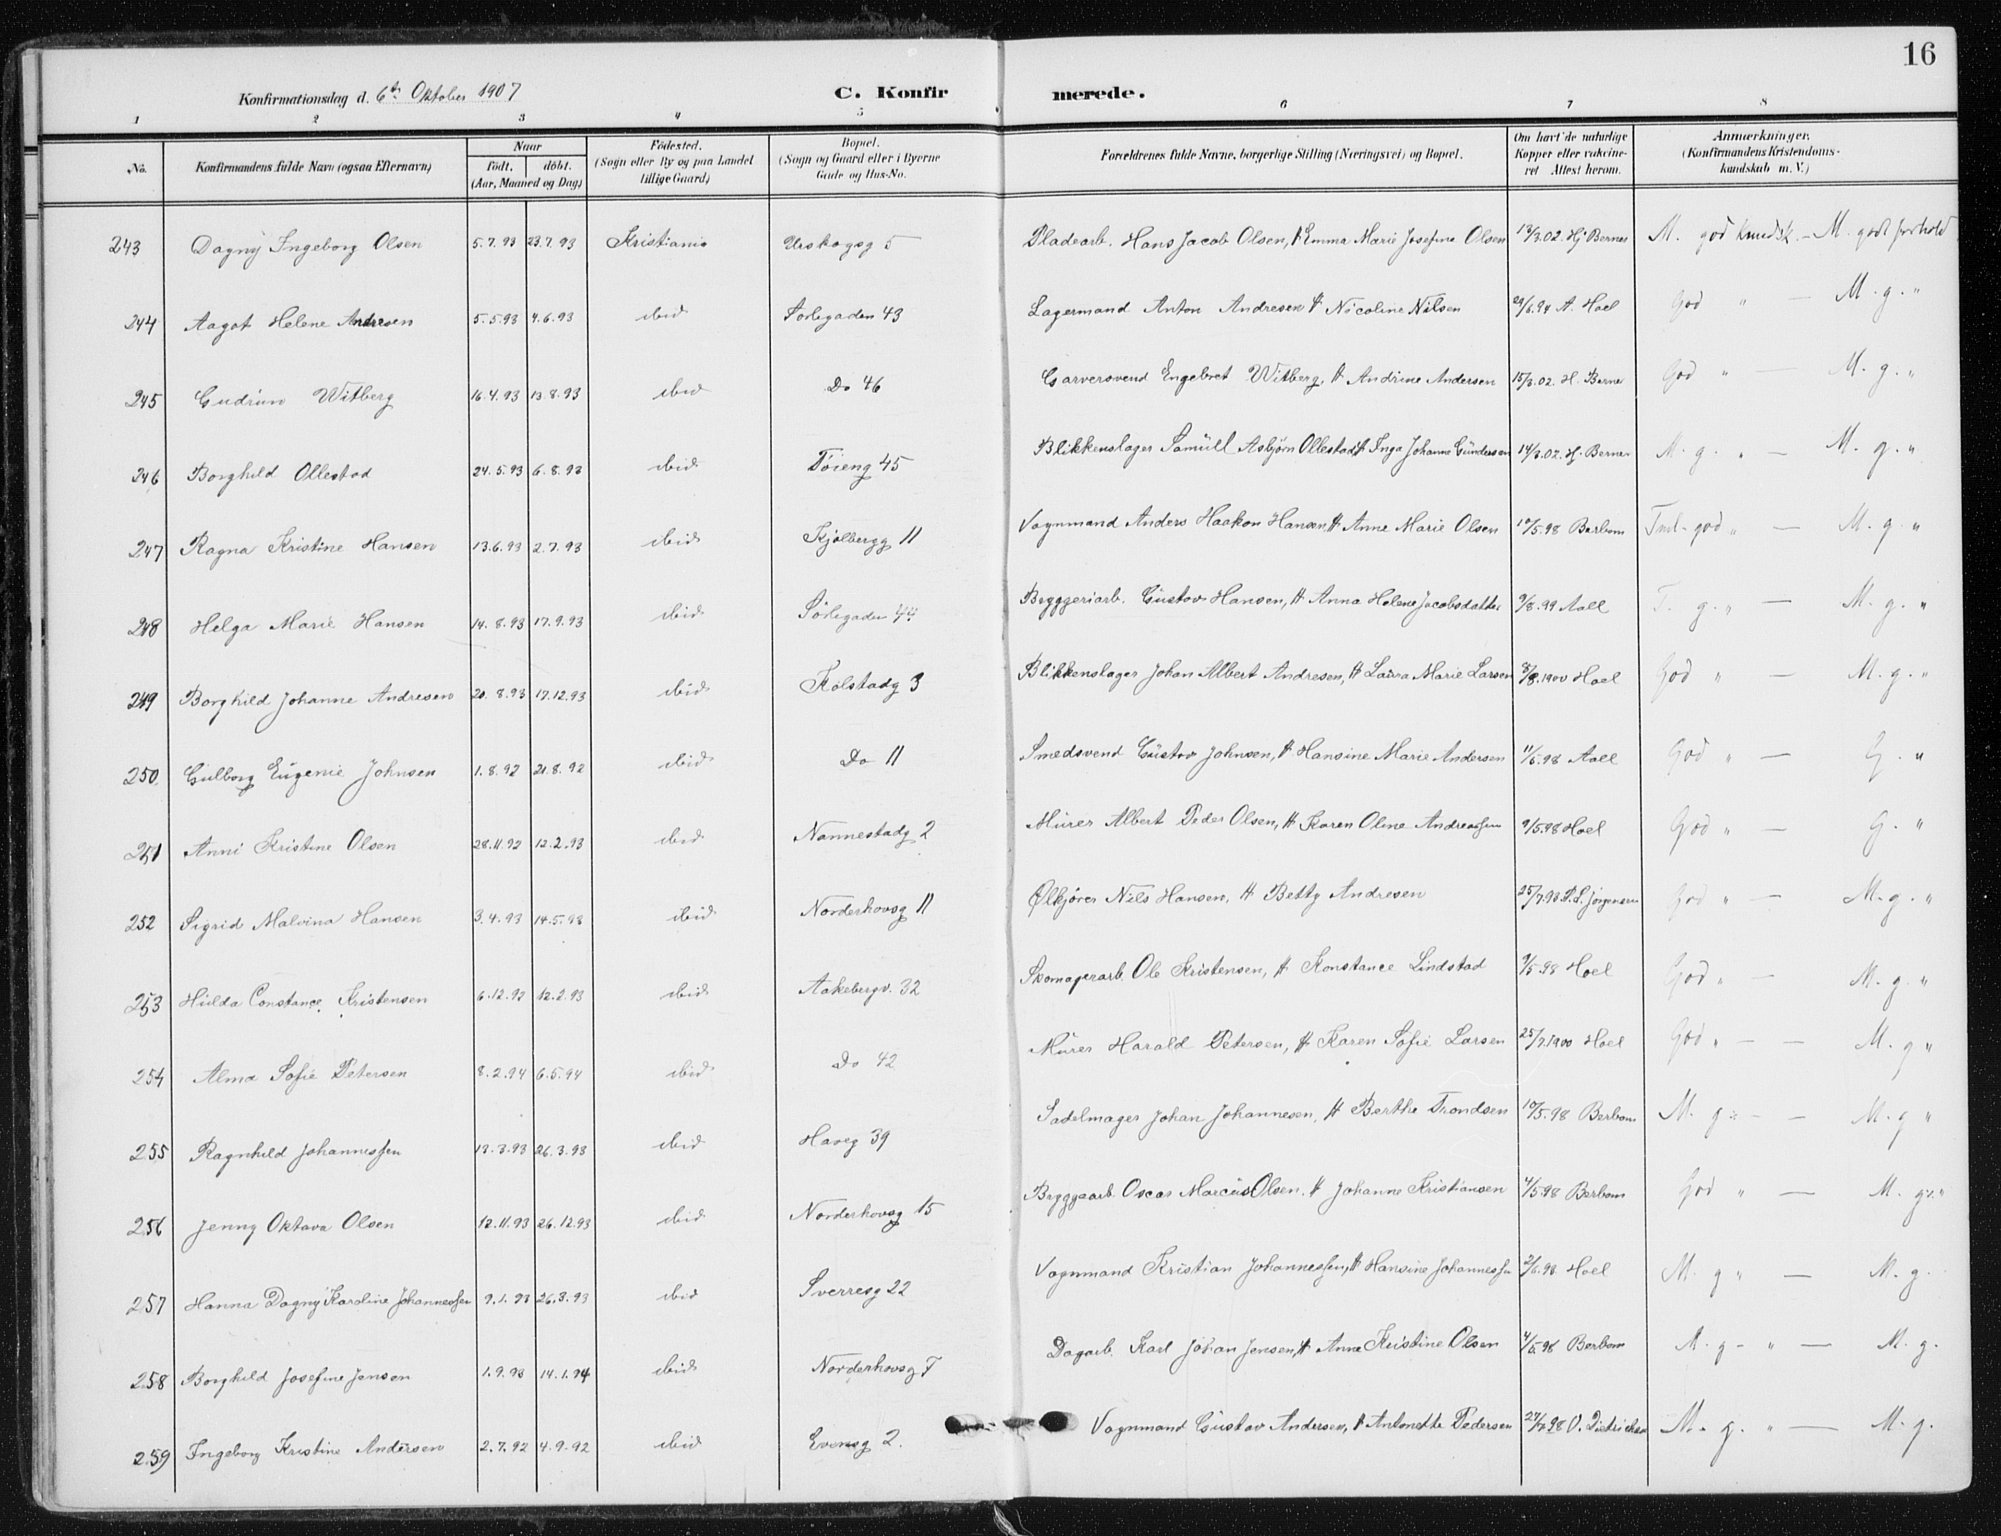 16
Konfirmationsdag d. 6te Oktober 1907
C. Konfirmerede.
1 2 3 4 5 6 7 8
No. Konfirmandens fulde Navn (ogsaa Efternavn) Naar født, døbt. (Aar, Maaned og Dag) Fødested. (Sogn eller By og paa Landet tillige Gaard) Bopæl. (Sogn og Gaard eller i Byerne Gade og Hus-No. Forældrenes fulde Navne, borgerlige Stilling (Næringsvei) og Bopæl. Om havt de naturlige Kopper eller vakcineret Attest herom. Anmærkninger. (Konfirmandens Kristendomskundskab m. V.)
243 Dagny Ingeborg Olsen 5.7.93 23.7.93 Kristiania Urskogsg 5 Pladearb. Hans Jacob Olsen, H Emma Marie Josefine Olsen 13/3.02. Hj Berner M. god kundsk. - M. godt forhold
244 Aagot Helene Andresen 5.5.93 4.6.93 ibid Sørligaden 43 Lagermand Anton Andresen H Nicoline Nilsen 29/6.94 A. Hoel God " — M. g. "
245 Gudrun Witberg 16.4.93 13.8.93 ibid Do 46 Garversvend Engebret Witberg, H Andrine Andersen 15/3.02. H. Berne God " — M. g. "
246 Borghild Ollestad 24.5.93 6.8.93 ibid Tøieng 45 Blikkenslager Samuel Asbjørn Ollestad H Inga Johanne Gundersen 14/3.02. Hj. Berner M. g. " — M. g. "
247 Ragna Kristine Hansen 13.6.93 2.7.93 ibid Kjølbergg 11 Vognmand Anders Haakon Hansen H Anne Marie Olsen 10/5.98 Berbom Tml. god " — M. g. "
248 Helga Marie Hansen 14.8.93 17.9.93 ibid Sørligaden 44 Bryggeriarb. Gustav Hansen, H Anna Helene Jacobsdatter 9/8.99 Aall T. g. " — M. g. "
249 Borghild Johanne Andresen 20.8.93 17.12.93 ibid Kolstadg 3 Blikkenslager Johan Albert Andresen, H Laura Marie Larsen 8/8.1900 Hoel God " — M. g. "
250. Gulborg Eugenie Johnsen 1.8.92 21.8.92 ibid Do 11 Smedsvend Gustav Johnsen, H Hansine Marie Andersen 11/6.98 Aall God " — G. "
251 Anni Kristine Olsen 28.11.92 12.2.93 ibid Nannestadg 2 Murer Albert Peder Olsen, H Karen Oline Andreassen 9/5.98 Hoel God " — G. "
252 Sigrid Malvina Hansen 3.4.93 14.5.93 ibid Norderhovsg 11 Ølkjører Nils Hansen, H Betty Andresen 25/7.98 P.S. Jørgensen God " — M. g. "
253 Hilda Constance Kristensen 6.12.92 12.2.93 ibid Aakebergv. 32 Skomagerarb. Ole Kristensen, H Konstance Lindstad 9/5.98 Hoel God " — M. g. "
254 Alma Sofie Petersen 8.2.94 6.5.94 ibid Do 42 Murer Harald Petersen, H Karen Sofie Larsen 25/7.1900 Hoel God " — — M. g "
255 Ragnhild Johannessen 13.3.93 26.3.93 ibid Haveg 39 Sadelmager Johan Johannesen, H Berthe Trondsen 10/5.98 Berbom M. g " — — M. g "
256 Jenny Oktava Olsen 12.11.93 26.12.93 ibid Norderhovsg 15 Bryggearb. Oscar Marcus Olsen. H Johanne Kristiansen 4/5.98 Berbom God " — M. g. "
257 Hanna Dagny Karoline Johannessen 9.1.93 26.3.93 ibid Sverresg 22 Vognmand Kristian Johannessen, H Hansine Johannessen 2/6.98 Hoel M. g " — M. g.
258 Borghild Josefine Jensen 1.9.93 14.1.94 ibid Norderhovsg 7 Dagarb. Karl Johan Jensen, H Anne Kristine Olsen 4/5.98 Berbom M. g - " — M. g.
259 Ingeborg Kristine Andersen 2.7.92 4.9.92 ibid Evensg 2. Vognmand Gustav Andersen, H Antonette Pedersen 98 V. Dietrichson M. g. " — M. g.